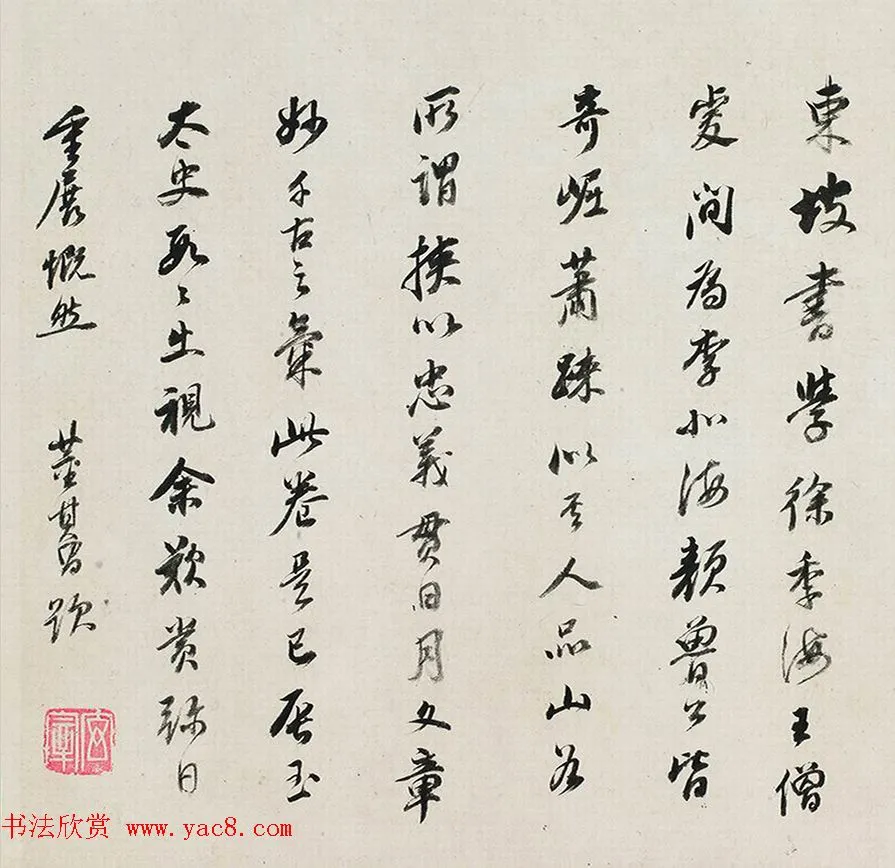 東坡書學徐季海王僧
虔間為李北海顏魯公皆
奇崛蕭疎似其人品山谷
所謂挾以忠義貫日月文章
妙千古之氣此卷是已辰玉
太史數〻出視余歎賞弥日
重展慨然 董其昌題
书法欣赏 www.yac8.com